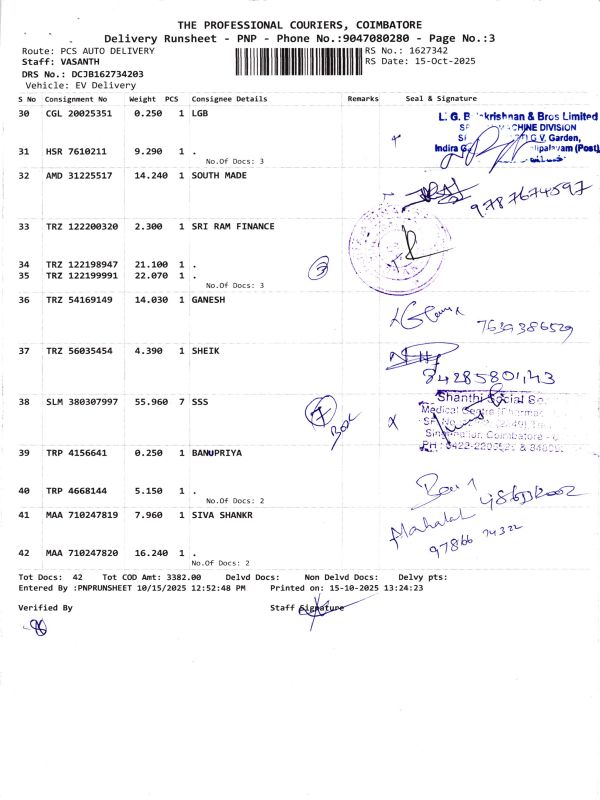 THE PROFESSIONAL COURIERS, COIMBATORE
Delivery Runsheet - PNP - Phone No.:9047080280 - Page No.:3
Route: PCS AUTO DELIVERY RS No.: 1627342
Staff: VASANTH RS Date: 15-Oct-2025
DRS No.: DCJB162734203
Vehicle: EV Delivery
S No Consignment No Weight PCS Consignee Details Remarks Seal & Signature
30 CGL 20025351 0.250 1 LGB
krishnan & Bros Limited
MACHINE DIVISION
G.V. Garden,
31 HSR 7610211 9.290 1 . Indira
(Post)
No.Of Docs: 3
32 AMD 31225517 14.240 1 SOUTH MADE
9787674597
33 TRZ 122200320 2.300 1 SRI RAM FINANCE
34 TRZ 122198947 21.100 1 .
3
35 TRZ 122199991 22.070 1 .
No.Of Docs: 3
36 TRZ 54169149 14.030 1 GANESH
7639386529
37 TRZ 56035454 4.390 1 SHEIK
38 SLM 380307997 55.960 7 SSS
Shanthi Social Se
Medical Centre
7 Box X
Coimbatore
PH: 0422-
39 TRP 4156641 0.250 1 BANUPRIYA
40 TRP 4668144 5.150 1 .
No.Of Docs: 2
41 MAA 710247819 7.960 1 SIVA SHANKR
97866 74322
42 MAA 710247820 16.240 1 .
No.Of Docs: 2
Tot Docs: 42 Tot COD Amt: 3382.00 Delvd Docs: Non Delvd Docs: Delvy pts:
Entered By :PNPRUNSHEET 10/15/2025 12:52:48 PM Printed on: 15-10-2025 13:24:23
Verified By Staff Signature